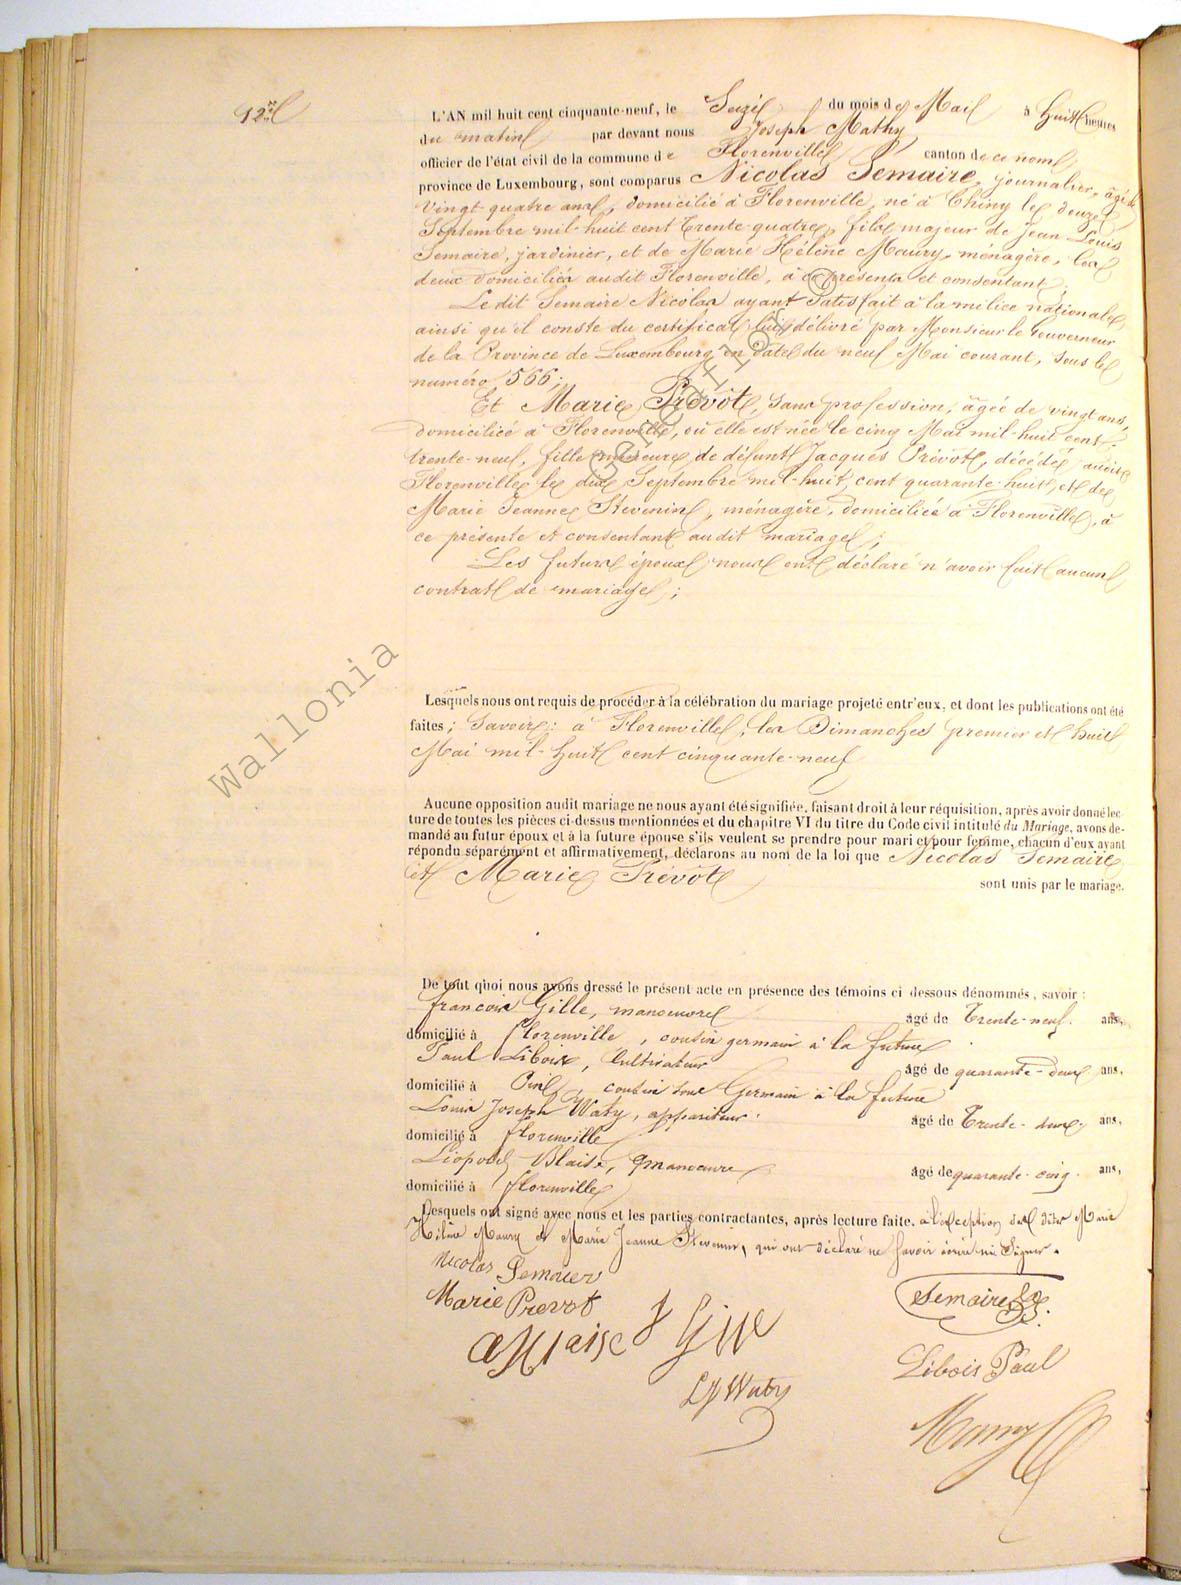 12me
L'AN mil huit cent cinquante-neuf, le Seize du mois de Mai à Huit heures
du matin par devant nous Joseph Mathy
officier de l'état civil de la commune de Florenville canton de ce nom
province de Luxembourg, sont comparus Nicolas Semaire, journalier, âgé de
vingt quatre ans, domicilié à Florenville, né à Chiny le douze
Septembre mil-huit cent trente-quatre, fils majeur de Jean Louis
Semaire, jardinier, et de Marie Hélène Maury, ménagère, les
deux domiciliés audit Florenville, à ce présents et consentant;
Le dit Semaire Nicolas ayant satisfait à la milice nationale
ainsi qu'il conste du certificat lui délivré par Monsieur le Gouverneur
de la Province de Luxembourg en date du neuf Mai courant, sous le
numéro 566;
Et Marie Prévot, sans profession, âgée de vingt ans,
domiciliée à Florenville, où elle est née le cinq Mai mil-huit cent-
trente-neuf, fille mineure de défunt Jacques Prévot, décédé audit
Florenville le deux Septembre mil-huit cent quarante-huit, et de
Marie Jeanne Stevenin, ménagère, domiciliée à Florenville, à
ce présente et consentant audit mariage;
Les futurs époux nous ont déclaré n'avoir fait aucun
contrat de mariage;
Lesquels nous ont requis de procéder à la célébration du mariage projeté entr'eux, et dont les publications ont été
faites; Savoir: à Florenville, les Dimanches premier et huit
Mai mil-huit cent cinquante-neuf
Aucune opposition audit mariage ne nous ayant été signifiée, faisant droit à leur réquisition, après avoir donné lec-
ture de toutes les pièces ci-dessus mentionnées et du chapitre VI du titre du Code civil intitulé du Mariage, avons de-
mandé au futur époux et à la future épouse s'ils veulent se prendre pour mari et pour femme, chacun d'eux ayant
répondu séparément et affirmativement, déclarons au nom de la loi que Nicolas Semaire
et Marie Prévot sont unis par le mariage.
De tout quoi nous avons dressé le présent acte en présence des témoins ci dessous dénommés, savoir:
francois Gille, manoeuvre âgé de Trente-neuf ans,
domicilié à florenville, cousin germain à la future
Paul Libois, Cultivateur âgé de quarante-deux ans,
domicilié à Pin, cousin sous Germain à la future
Louis Joseph Waty, appariteur âgé de Trente-deux ans,
domicilié à florenville
Léopold Blaise, manoeuvre âgé de quarante-cinq ans,
domicilié à florenville
Lesquels ont signé avec nous et les parties contractantes, après lecture faite, à l'exception des dites Marie
Hélène Maury et Marie Jeanne Stevenin, qui ont déclaré ne savoir écrire ni signer.
Nicolas Semaier
Marie Prevot
Semaire
Blaise
f Gille
Libois Paul
LJ Waty
Wallonia
Geneaflor ©